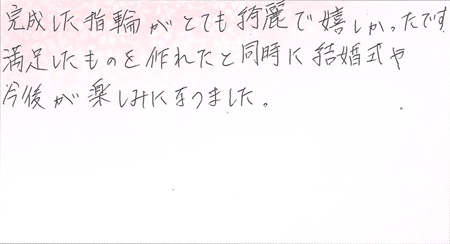 完成した指輪がとても綺麗で嬉しかったです
満足したものを作れたと同時に結婚式や
今後が楽しみになりました。